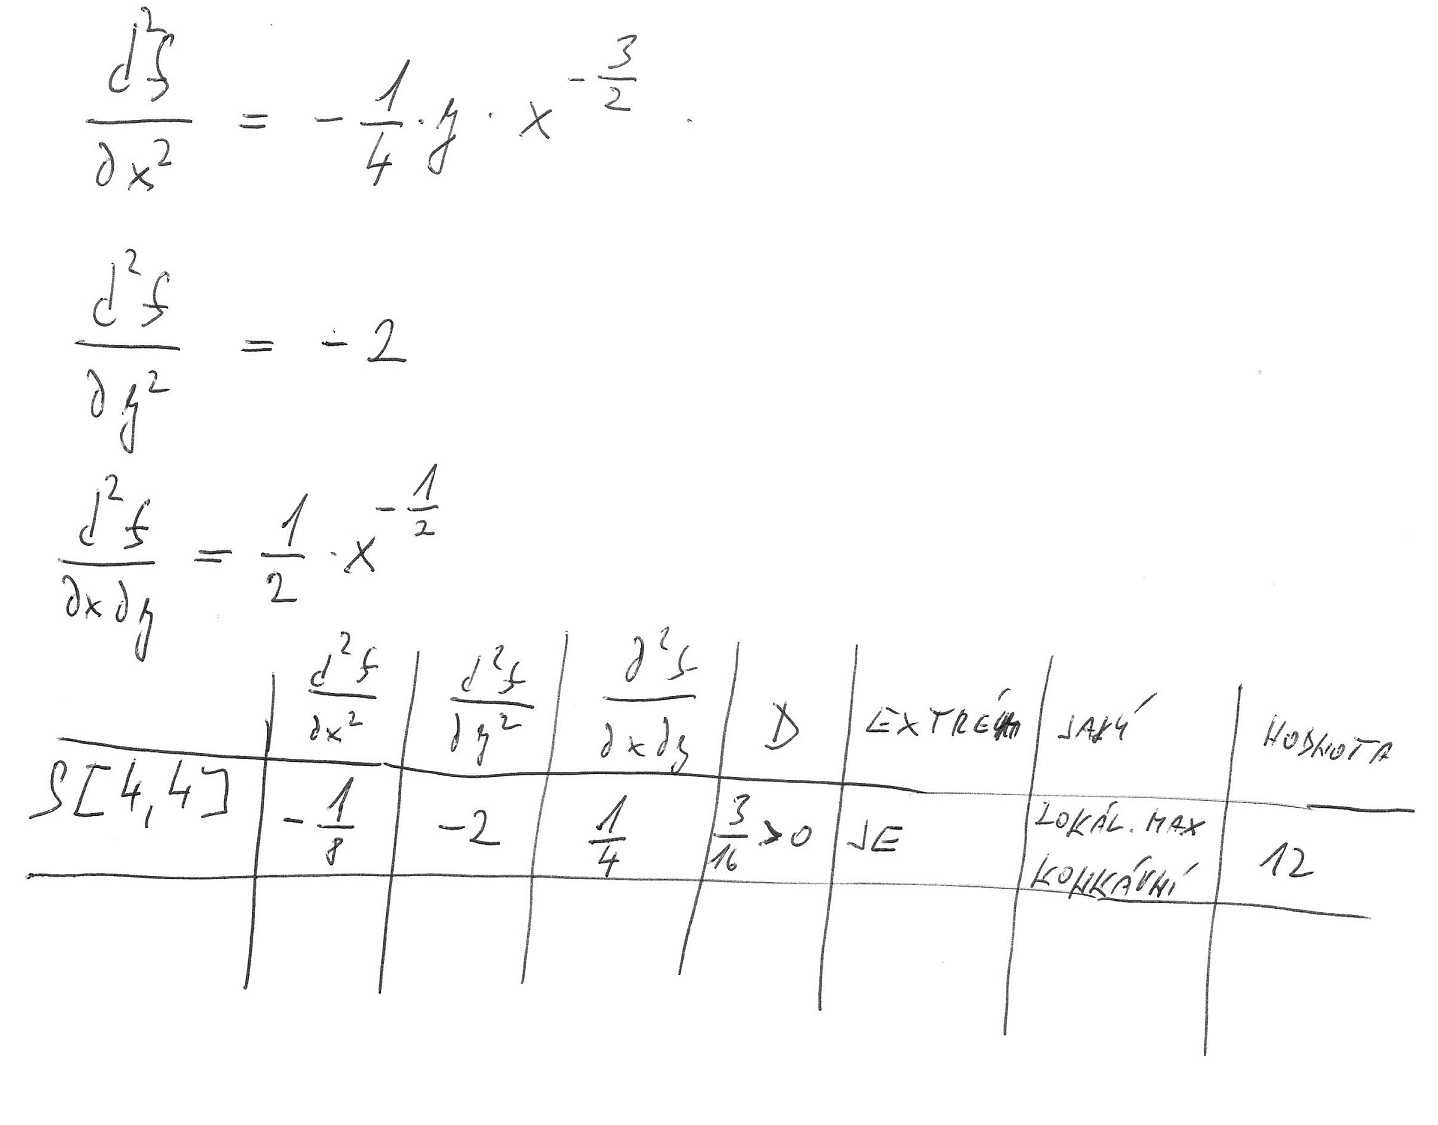 d²f/∂x² = - 1/4 · y · x^(-3/2)
d²f/∂y² = - 2
d²f/∂x∂y = 1/2 · x^(-1/2)
d²f/∂x² | d²f/∂y² | ∂²f/∂x∂y | D | EXTRÉM | JAKÝ | HODNOTA
S[4,4] | - 1/8 | -2 | 1/4 | 3/16 > 0 | JE | LOKÁL. MAX KONKÁVNÍ | 12